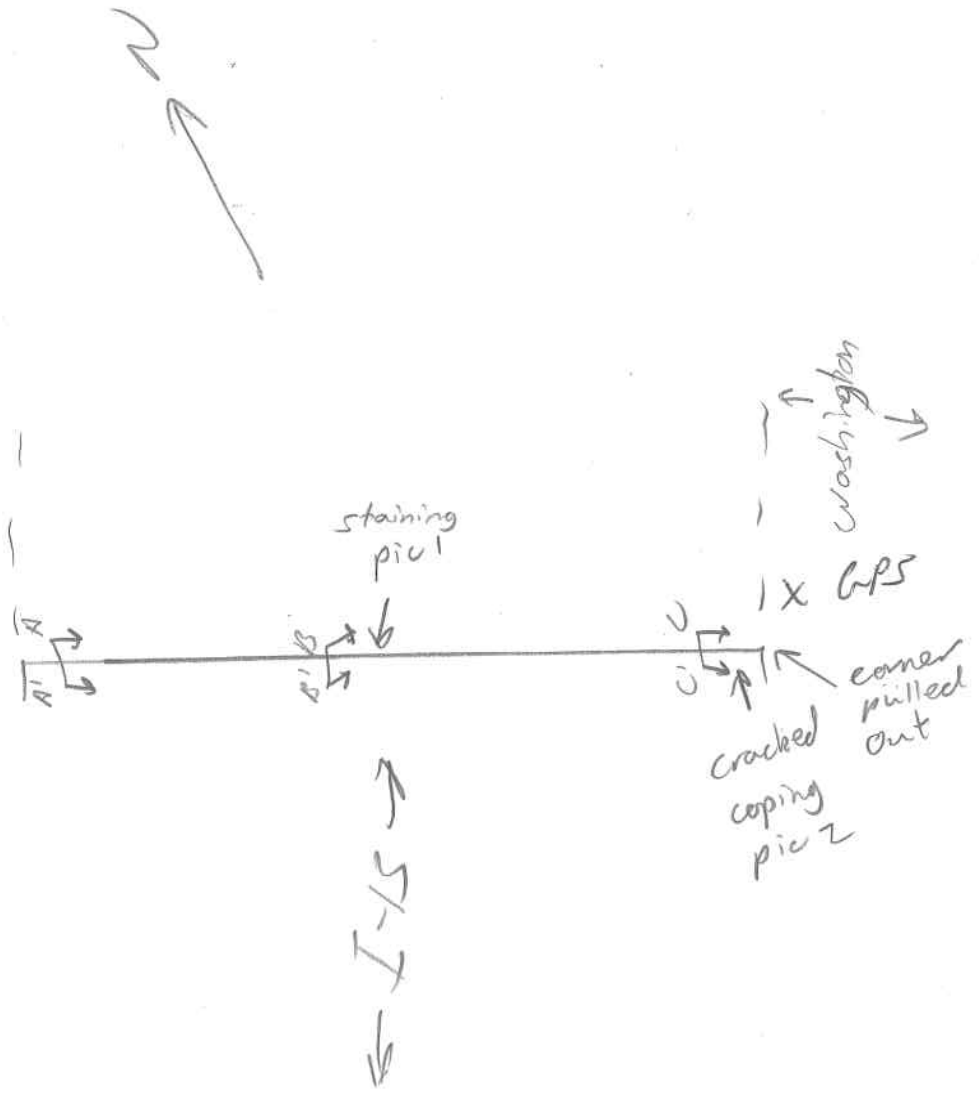 N
Washington
staining
pic 1
X GPS
A
A'
B
B'
C
C'
corner
pulled
out
cracked
coping
pic 2
I-15